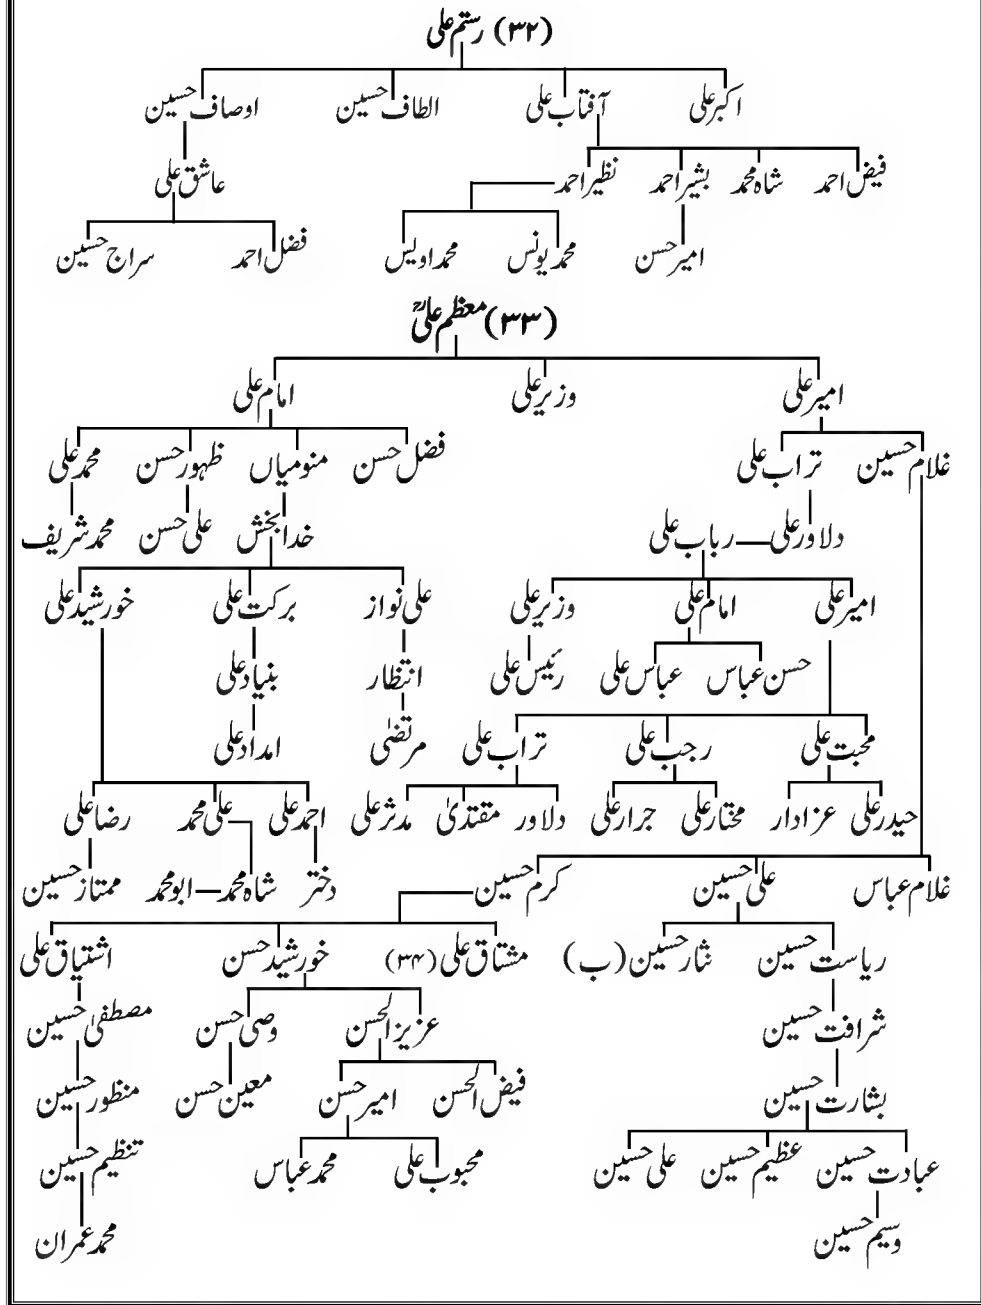 (۳۲) رستم علی
اکبر علی آفتاب علی الطاف حسین اوصاف حسین
فیض احمد شاہ محمد بشیر احمد نظیر احمد عاشق علی
امیر حسن محمد یونس محمد اویس فضل احمد سراج حسین
(۳۳) معظم علیؒ
امیر علی وزیر علی امام علی
غلام حسین تراب علی فضل حسن منو میاں ظہور حسن محمد علی
دلاور علی — رباب علی خدا بخش علی حسن محمد شریف
امیر علی امام علی وزیر علی علی نواز برکت علی خورشید علی
حسن عباس عباس علی رئیس علی انتظار بنیاد علی
محبت علی رجب علی تراب علی مرتضیٰ امداد علی
حیدر علی عزادار مختار علی جرار علی دلاور مقتدیٰ مدثر علی احمد علی علی محمد رضا علی
غلام عباس علی حسین کرم حسین دختر شاہ محمد — ابو محمد ممتاز حسین
ریاست حسین نثار حسین (ب) مشتاق علی (۳۴) خورشید حسن اشتیاق علی
شرافت حسین عزیز الحسن وصی حسن مصطفیٰ حسین
بشارت حسین فیض الحسن امیر حسن معین حسن منظور حسین
عبادت حسین عظیم حسین علی حسین محبوب علی محمد عباس تنظیم حسین
وسیم حسین محمد عمران